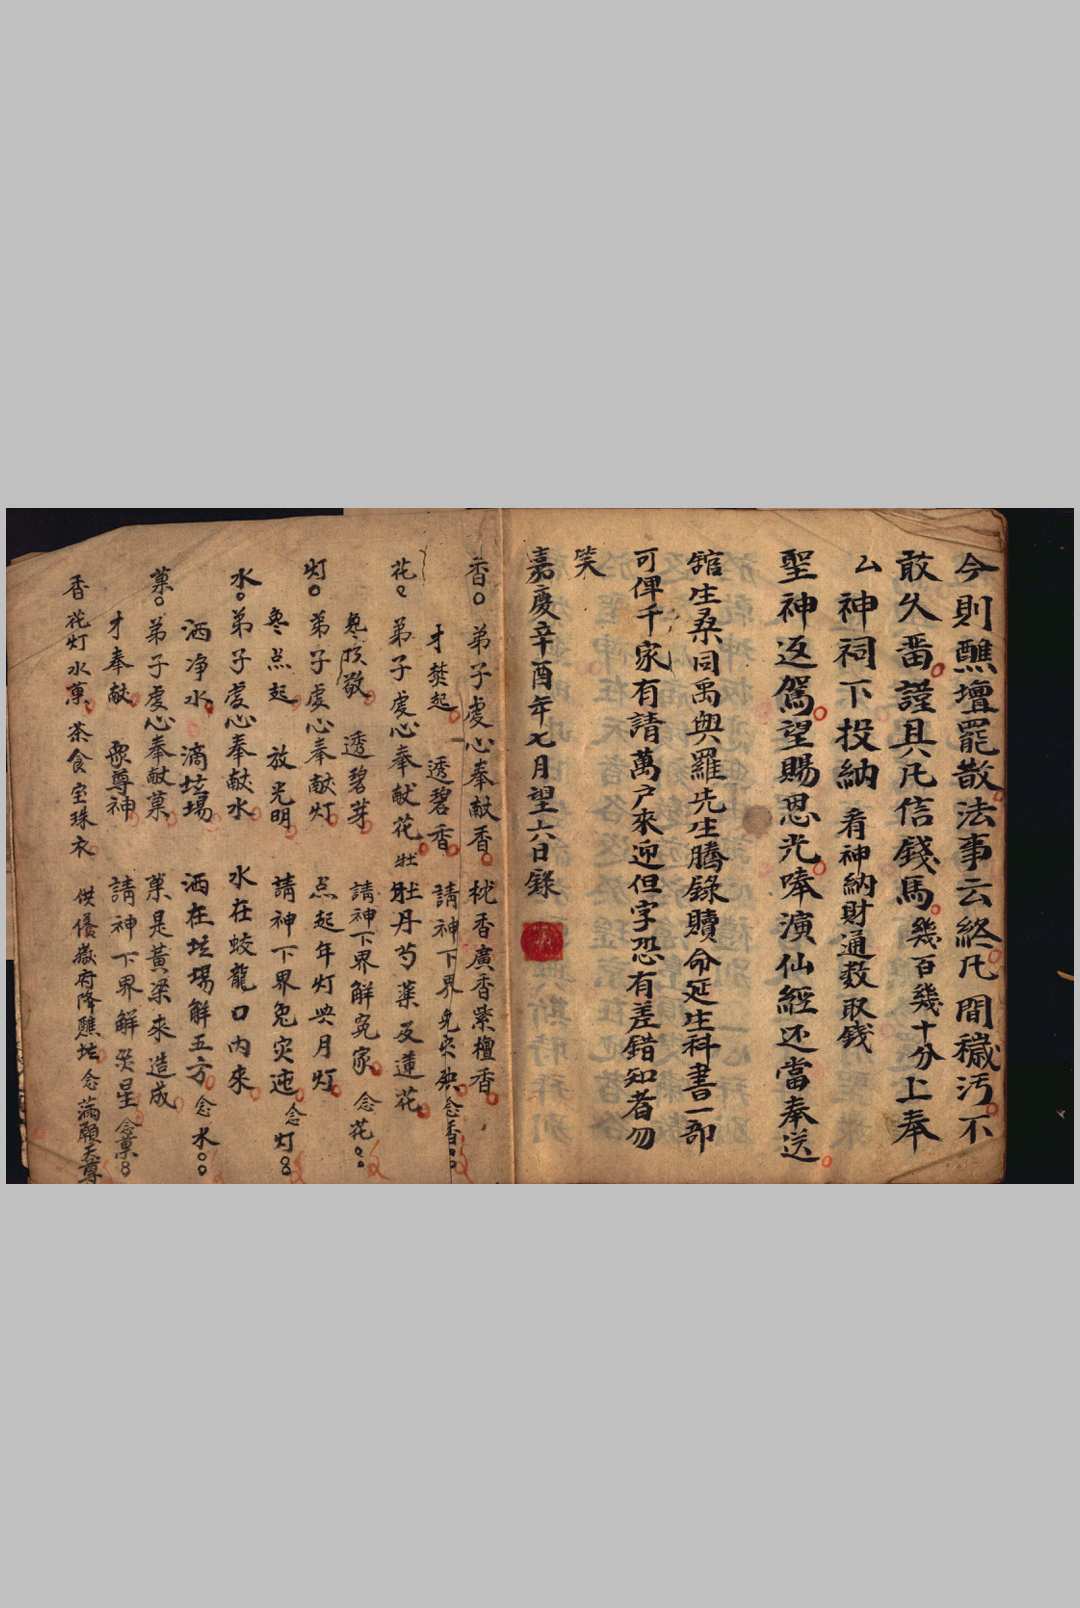 今則醮壇罷散法事云終凡間穢污不
敢久畱謹具凡信錢馬幾百幾十分上奉
厶神祠下投納 看神納財通数取錢
聖神返駕望賜恩光奉演仙經还當奉送
舘生桑同禹與羅先生騰錄贖命延生科書一部
可俾千家有請萬户來迎但字恐有差錯知者勿
笑
嘉慶辛酉年七月望六日錄
香 弟子虔心奉献香 枕香廣香紫檀香
才焚起 透碧香 請神下界免灾殃 念香
花 弟子虔心奉献花 牡丹芍葯及蓮花
敬 透碧芽 請神下界解冤家 念花
灯 弟子虔心奉献灯 点起年灯与月灯
点起 放光明 請神下界免灾迍 念灯
水 弟子虔心奉献水 水在蛟龍口内來
洒净水 滴坛場 洒在坛場解五方 念水
菓 弟子虔心奉献菓 菓是黄梁來造成
才奉献 衆尊神 請神下界解灾星 念菓
香花灯水菓 茶食宝珠衣 供养嶽府降醮坛 念滿願天尊